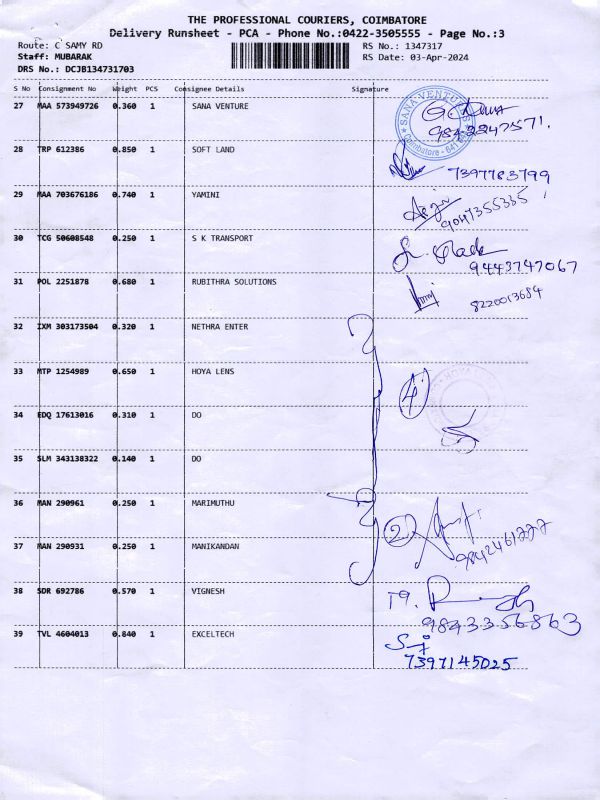 THE PROFESSIONAL COURIERS, COIMBATORE
Delivery Runsheet - PCA - Phone No.:0422-3505555 - Page No.:3
Route: C SAMY RD
RS No.: 1347317
Staff: MUBARAK
RS Date: 03-Apr-2024
DRS No.: DCJB134731703
S No Consignment No Weight PCS Consignee Details Signature
27 MAA 573949726 0.360 1 SANA VENTURE
SANA VENTURE
Coimbatore - 641
28 TRP 612386 0.850 1 SOFT LAND
7397783799
29 MAA 703676186 0.740 1 YAMINI
9047355385
30 TCG 50608548 0.250 1 S K TRANSPORT
9443747067
31 POL 2251878 0.680 1 RUBITHRA SOLUTIONS
8220013684
32 IXM 303173504 0.320 1 NETHRA ENTER
33 MTP 1254989 0.650 1 HOYA LENS
4
34 EDQ 17613016 0.310 1 DO
35 SLM 343138322 0.140 1 DO
36 MAN 290961 0.250 1 MARIMUTHU
2
37 MAN 290931 0.250 1 MANIKANDAN
38 SDR 692786 0.570 1 VIGNESH
9843356863
39 TVL 4604013 0.840 1 EXCELTECH
7397145025